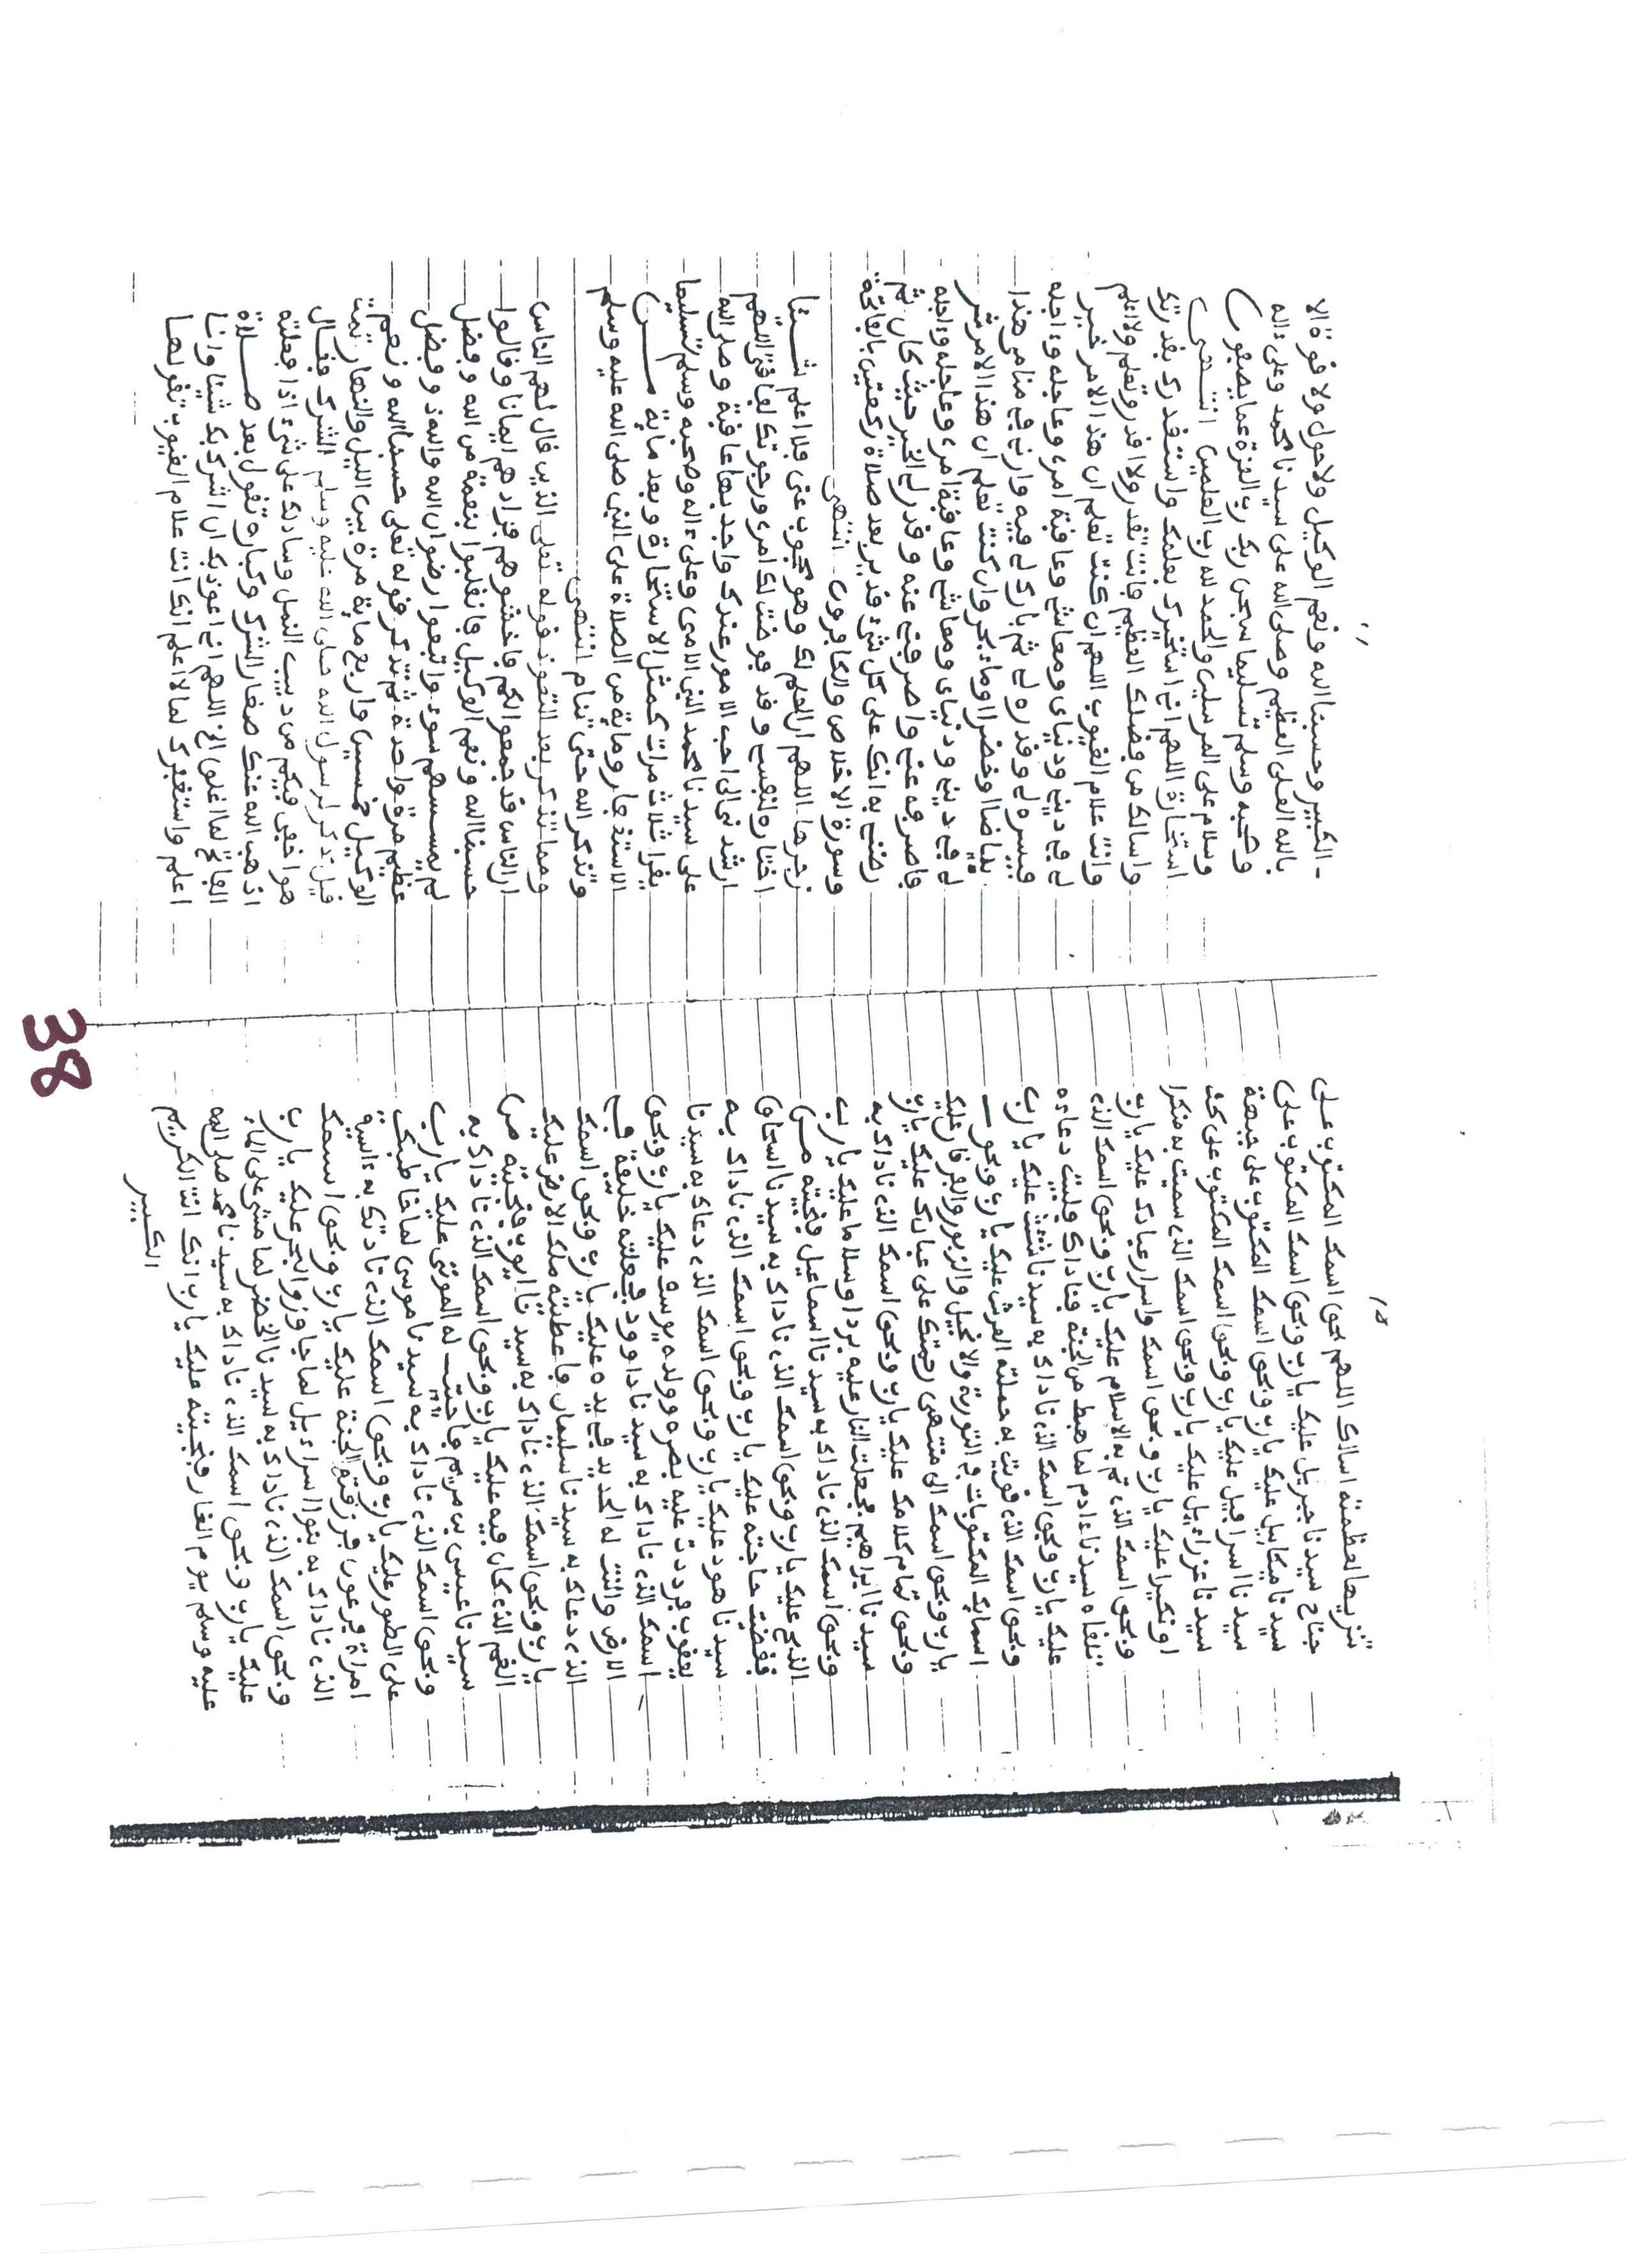 تنزيها لعظمته اسالك اللهم بحق اسمك المكتوب على
جناح سيدنا جبريل عليك يارب وبحق اسمك المكتوب على
سيدنا ميكاييل عليك يارب وبحق اسمك المكتوب على جبهة
سيدنا اسرافيل عليك يارب وبحق اسمك المكتوب على كف
سيدنا عزراءيل عليك يارب وبحق اسمك الذي سميت به منكرا
او نكيرا عليك يارب وبحق اسمك واسرار عبادك عليك يارب
وبحق اسمك الذي تم به الاسلام عليك يارب وبحق اسمك الذي
تلقاه سيدنا ءادم لما هبط من الجنة فناداك فلبيت دعاءه
عليك يارب وبحق اسمك الذي ناداك به سيدنا شئث عليك يارب
وبحق اسمك الذي قويت به حملة العرش عليك يارب وبحق
اسمايك المكتوبات في التورية والانجيل والزبور والفرقان عليك
يارب وبحق اسمك الى منتهى رحمتك على عبادك عليك يارب
وبحق تمام كلامك عليك يارب وبحق اسمك الذي ناداك به
سيدنا ابراهيم فجعلت النار عليه بردا وسلاما عليك يارب
وبحق اسمك الذي ناداك به سيدنا اسماعيل فنجيته من
الذبح عليك يارب وبحق اسمك الذي ناداك به سيدنا اسحاق
فقضيت حاجته عليك يارب وبحق اسمك الذي ناداك به
سيدنا هود عليك يارب وبحق اسمك الذي دعاك به سيدنا
يعقوب فرددت عليه بصره وولده يوسف عليك يارب وبحق
اسمك الذي ناداك به سيدنا داوود فجعلته خليفة في
الارض والنت له الحديد في يده عليك يارب وبحق اسمك
الذي دعاك به سيدنا سليمان فاعطيته ملك الارض عليك
يارب وبحق اسمك الذي ناداك به سيدنا ايوب فنجيته من
الغم الذي كان فيه عليك يارب وبحق اسمك الذي ناداك به
سيدنا عيسى بن مريم فاحييت له الموتى عليك يارب
وبحق اسمك الذي ناداك به سيدنا موسى لما خاطبك
على الطور عليك يارب وبحق اسمك الذي نادتك به ءاسية
امراة فرعون فرزقتها الجنة عليك يارب وبحق اسمك
الذي ناداك به بنوا اسراءيل لما جاوزوا البحر عليك يارب
وبحق اسمك الذي ناداك به سيدنا الخضر لما مشى على الماء
عليك يارب وبحق اسمك الذي ناداك به سيدنا محمد صلى الله
عليه وسلم يوم الغار فنجيته عليك يارب انك انت الكريم
الكبير
الكبير وحسبنا الله ونعم الوكيل ولا حول ولا قوة الا
بالله العلي العظيم وصلى الله على سيدنا محمد وعلى ءاله
وصحبه وسلم تسليما سبحن ربك رب العزة عما يصفون
وسلام على المرسلين والحمد لله رب العلمين انتهى
استخارة اللهم اني استخيرك بعلمك واستقدرك بقدرتك
واسالك من فضلك العظيم فانت تقدر ولا اقدر وتعلم ولا اعلم
وانت علام الغيوب اللهم ان كنت تعلم ان هذا الامر خير
لي في ديني ودنياي ومعاشي وعاقبة امري وعاجله وءاجله
فيسره لي وقدره لي ثم بارك لي فيه وارني في منامي هذا
بياضا او خضرا او ماء يجري وان كنت تعلم ان هذا الامر شر
لي في ديني ودنياي ومعاشي وعاقبة امري وعاجله وءاجله
فاصرفه عني واصرفني عنه وقدر لي الخير حيث كان ثم
رضني به انك على كل شيء قدير بعد صلاة ركعتين بالفاتحة
وسورة الاخلاص والكافرون انتهى
غيرها اللهم ان العلم لك وهو محجوب عني فلا اعلم شيئا
اختاره لنفسي وقد فوضت لك امري ورجوتك لفاقتي اللهم
ارشدني الى احب الامور عندك واحمدها عاقبة وصلى الله
على سيدنا محمد النبي الامي وعلى ءاله وصحبه وسلم تسليما
يقرا ثلاث مرات كمثل الاستخارة وبعد ماية من
الاستغفار وماية من الصلاة على النبي صلى الله عليه وسلم
وتذكر الله حتى تنام انتهى
ومما تذكر بعد التعوذ قوله تعلى الذين قال لهم الناس
ان الناس قد جمعوا لكم فاخشوهم فزادهم ايمانا وقالوا
حسبنا الله ونعم الوكيل فانقلبوا بنعمة من الله وفضل
لم يمسسهم سوء واتبعوا رضوان الله والله ذو فضل
عظيم مرة واحدة ثم تذكر قوله تعلى حسبنا الله ونعم
الوكيل خمسين واربع ماية مرة بين الليل والنهار تمت
قيل تذكر لرسول الله صلى الله عليه وسلم الشرك فقال
هو اخفى فيكم من دبيب النمل وسادلك على شيء اذا فعلته
اذهب الله عنك صغار الشرك وكباره تقول بعد صلاة
الفاتح لما اغلق الخ اللهم اني اعوذ بك ان اشرك بك شيئا وانا
اعلم واستغفرك لما لا اعلم انك انت علام الغيوب تقولها
38